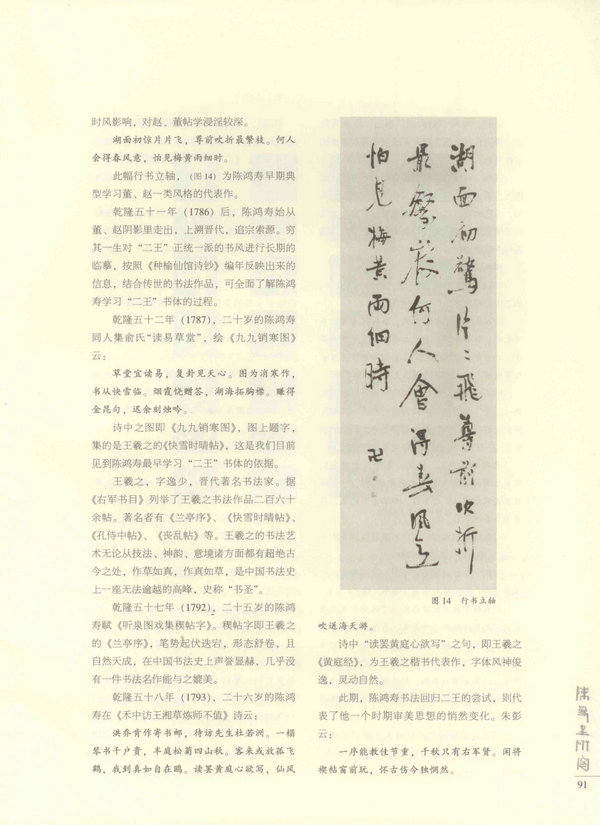 时风影响，对赵、董帖学浸淫较深。
湖面初惊片片飞，尊前吹折最繁枝。何人
会得春风意，怕见梅黄雨细时。
此幅行书立轴，（图 14）为陈鸿寿早期典
型学习董、赵一类风格的代表作。
乾隆五十一年（1786）后，陈鸿寿始从
董、赵阴影里走出，上溯晋代，追宗索源。穷
其一生对“二王”正统一派的书风进行长期的
临摹，按照《种榆仙馆诗钞》编年反映出来的
信息，结合传世的书法作品，可全面了解陈鸿
寿学习“二王”书体的过程。
乾隆五十二年（1787），二十岁的陈鸿寿
同人集俞氏“读易草堂”，绘《九九销寒图》
云：
草堂宜读易，复卦见天心。图为消寒作，
书从快雪临。烟霞饶赠答，湖海拓胸襟。赚得
金昆句，迟余刻烛吟。
诗中之图即《九九销寒图》，图上题字，
集的是王羲之的《快雪时晴帖》，这是我们目前
见到陈鸿寿最早学习“二王”书体的依据。
王羲之，字逸少，晋代著名书法家。据
《右军书目》列举了王羲之书法作品二百六十
余帖。著名者有《兰亭序》、《快雪时晴帖》、
《孔侍中帖》、《丧乱帖》等。王羲之的书法艺
术无论从技法、神韵、意境诸方面都有超绝古
今之处，作草如真，作真如草，是中国书法史
上一座无法逾越的高峰，史称“书圣”。
乾隆五十七年（1792），二十五岁的陈鸿
寿赋《听泉图戏集稧帖字》。稧帖字即王羲之
的《兰亭序》，笔势起伏迭宕，形态舒卷，且
自然天成，在中国书法史上声誉显赫，几乎没
有一件书法名作能与之媲美。
乾隆五十八年（1793），二十六岁的陈鸿
寿在《禾中访王湘草炼师不值》诗云：
洪乔肯作寄书邮，待访先生杜若洲。一榻
琴书千户贵，半庭松菊四山秋。客来或放孤飞
鹤，我到真如自在鸥。读罢黄庭心欲写，仙风
湖面初惊片〻飞尊前吹折
最繁枝何人会得春风意
怕见梅黄雨细時
卍
图 14 行书立轴
吹送海天游。
诗中“读罢黄庭心欲写”之句，即王羲之
《黄庭经》，为王羲之楷书代表作，字体风神俊
逸，灵动自然。
此期，陈鸿寿书法回归二王的尝试，则代
表了他一个时期审美思想的悄然变化。朱彭
云：
一序能教佳节重，千秋只有右军贤。闲将
稧帖窗前玩，怀古伤今独惘然。
91